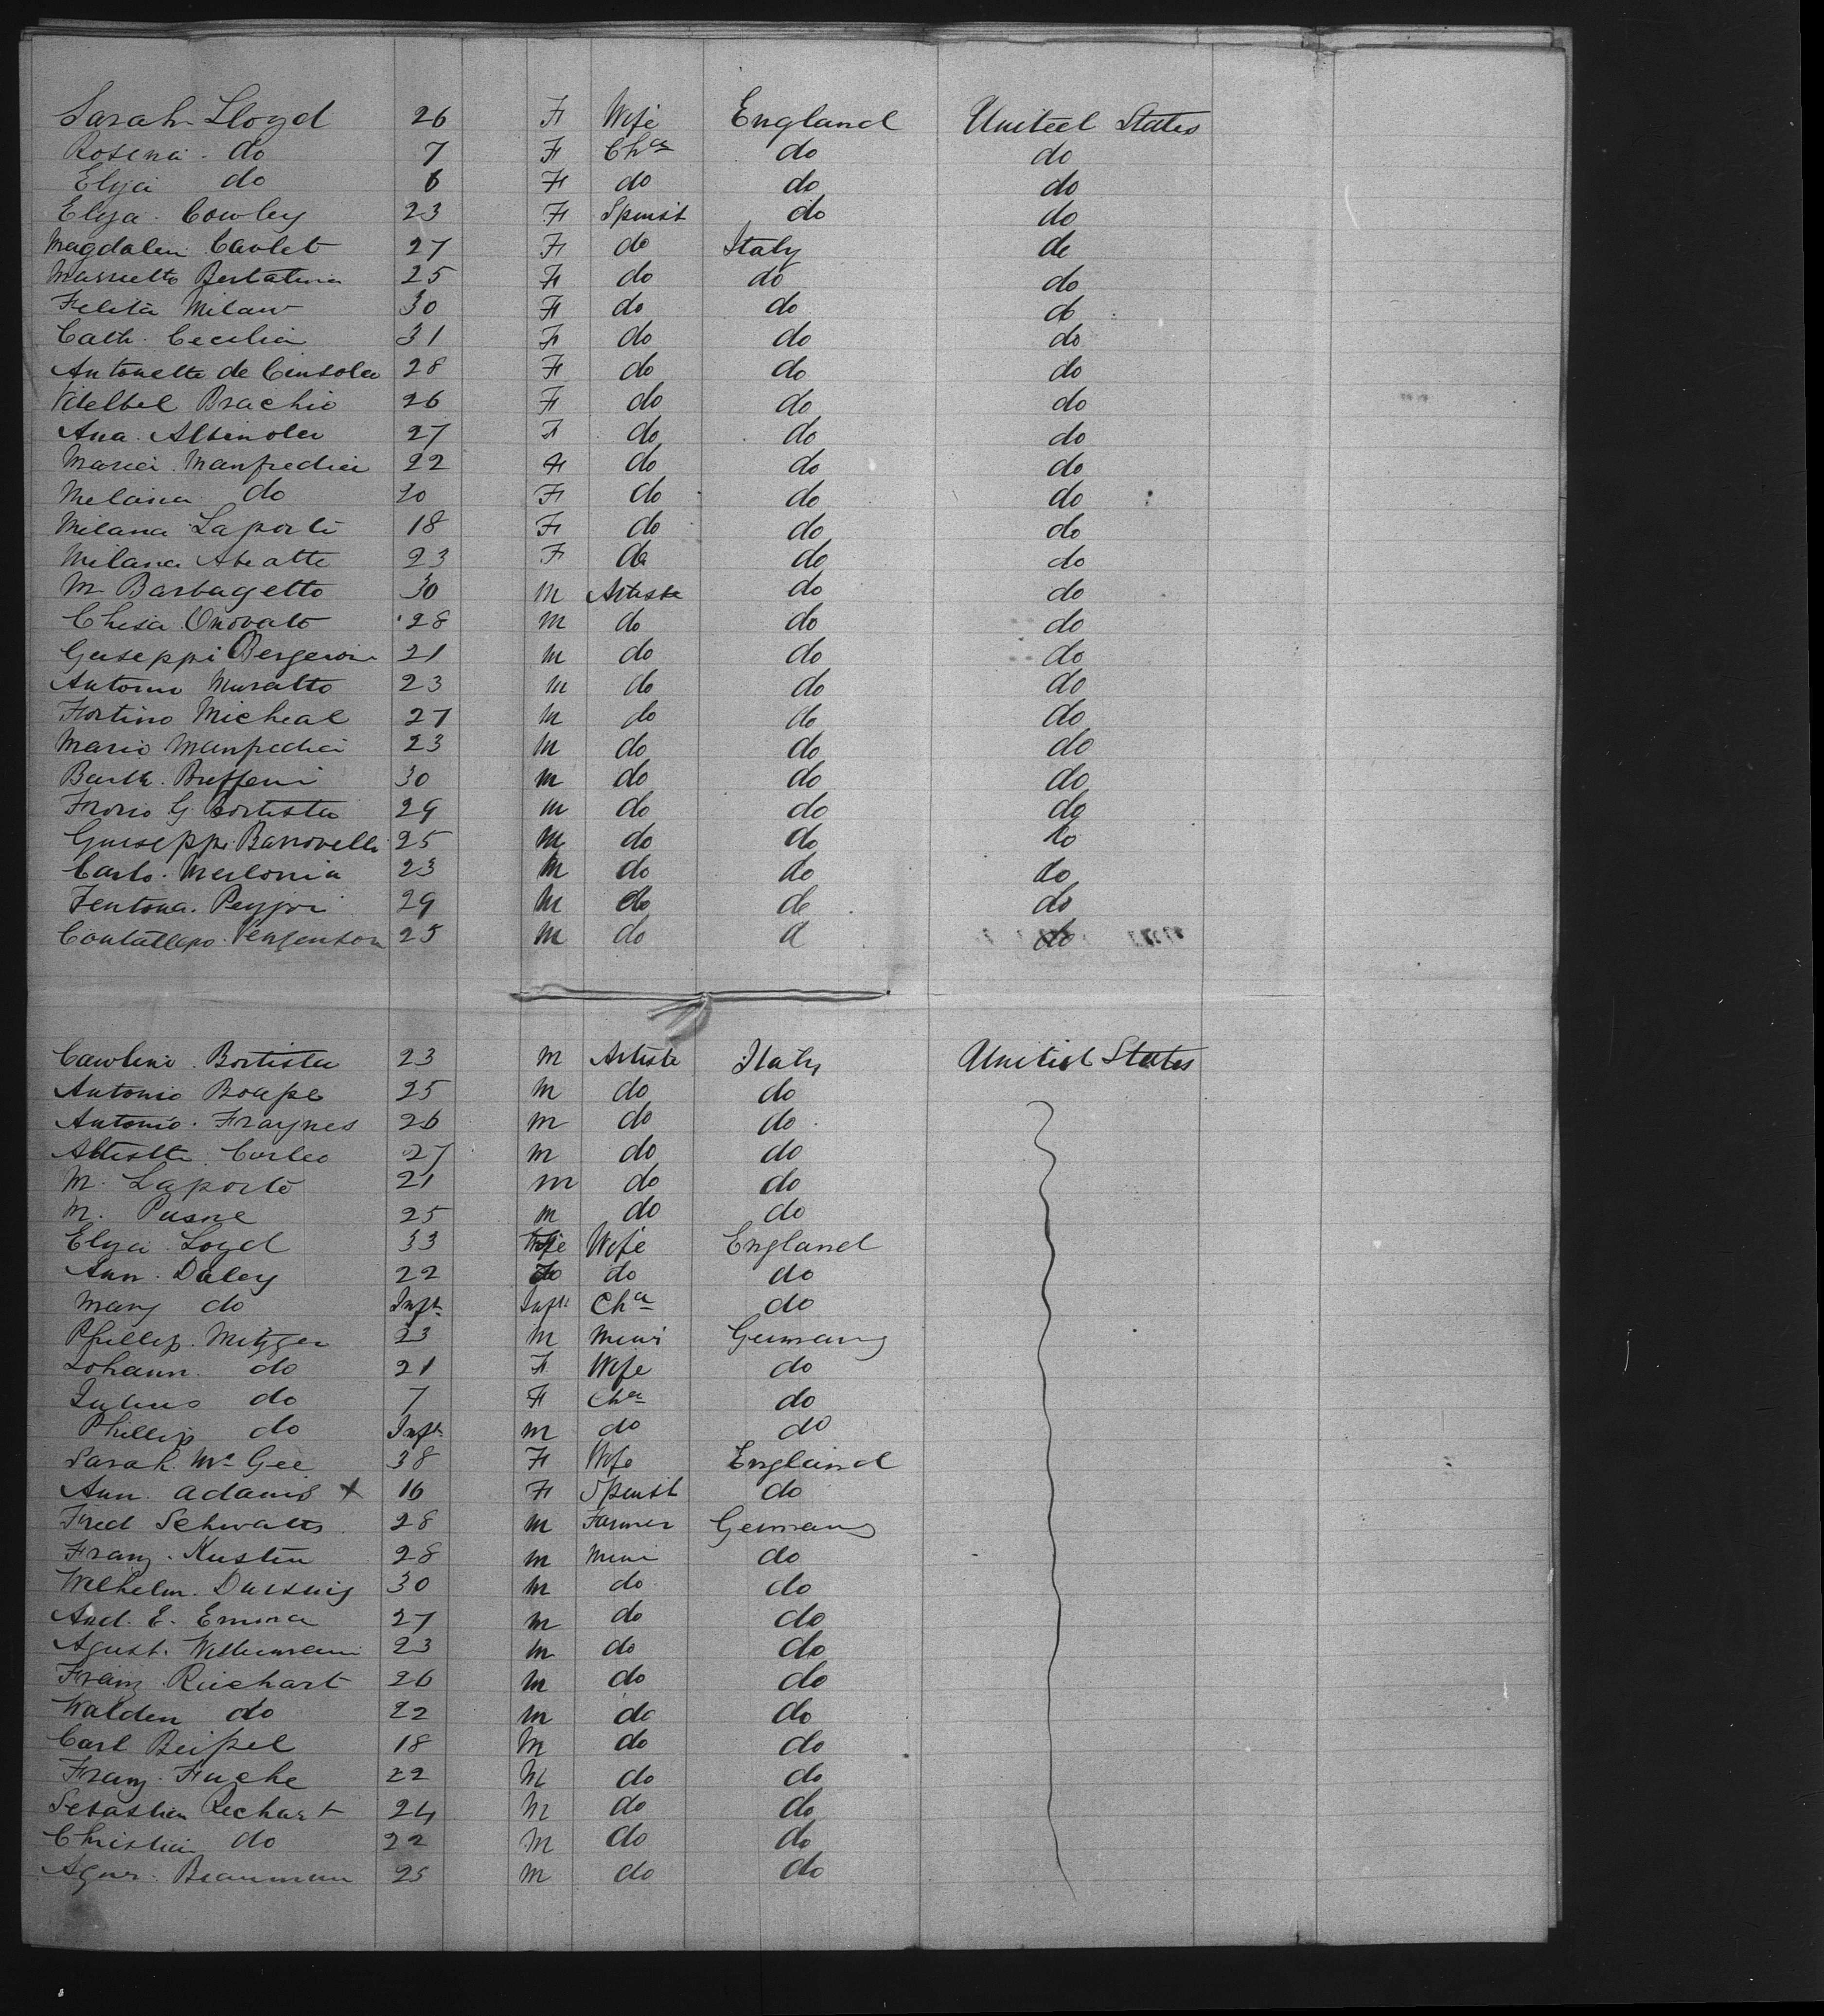 Sarah Lloyd 26 F Wife England United States
Rosena do 7 F Chd do do
Eliza do 6 F do do do
Eliza Cowley 23 F Spinst do do
Magdalen Cavlet 27 F do Italy do
25 F do do do
Felita Milan 30 F do do do
Cath. Cecilia 31 F do do do
Antonette de 28 F do do do
Brachio 26 F do do do
Ana Albinola 27 F do do do
Maria Manfredia 22 F do do do
Melana do 20 F do do do
Milana Laporte 18 F do do do
Melana Abeatte 23 F do do do
M Barbagetto 30 M Artiste do do
Chesa Onovato 28 M do do do
Guseppi Bergeroni 21 M do do do
Antonio Muratto 23 M do do do
Fortino Micheal 27 M do do do
Mario Manfredia 23 M do do do
Barth. Buffeni 30 M do do do
G. Bortista 29 M do do do
Guiseppi Barrovelli 25 M do do do
Carlo Merlonia 23 M do do do
Fentona 29 M do do do
25 M do d do
Bortista 23 M Artiste Italy United States
Antonio 25 M do do
Antonio Fraynes 26 M do do
Carleo 27 M do do
M. Laporte 21 M do do
M. 25 M do do
Eliza Loyd 33 Wife England
Ann Daley 22 do do
Mary do Inft Inft Chd do
Phillip Metzger 23 M Mini Germany
Johann do 21 F Wife do
Julius do 7 F Chd do
Phillip do Inft M do do
Sarah McGee 38 F Wife England
Ann Adams x 16 F Spinst do
Fred Schwalts 28 M Farmer Germany
Franz Kustin 28 M Mini do
Wilhelm 30 M do do
And. E. Emma 27 M do do
Agust. 23 M do do
Franz Riechart 26 M do do
Walden do 22 M do do
Carl Beißel 18 M do do
Franz Fuche 22 M do do
Sebastien Rechart 24 M do do
Christian do 22 M do do
Beauman 25 M do do